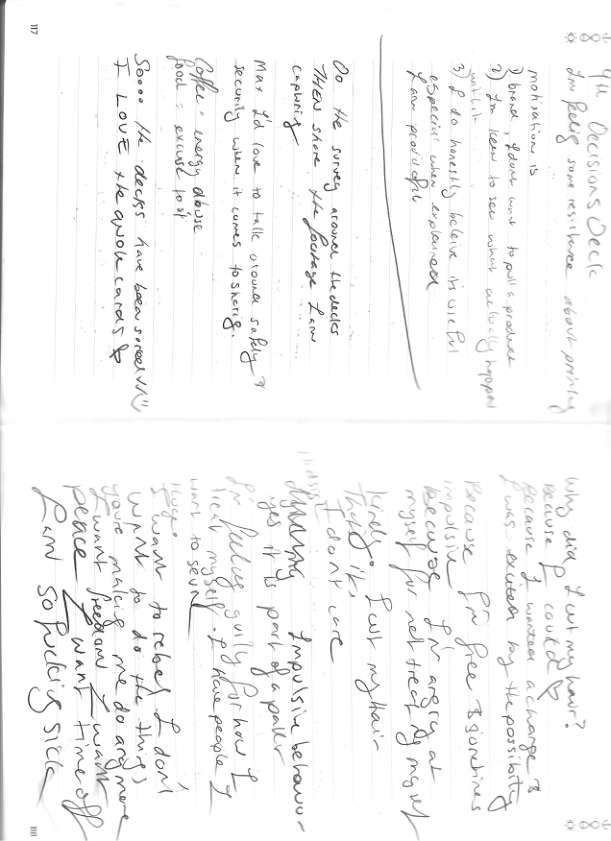 4th Decisions Deck
I'm feelig some resistance about printing
motivation is
1) brand, I dont want to pull a produce
2) I'm keen to see what actually happens
with it
3) I do honestly beleive its useful
especial when explained
I am proud of it
Do the survey around the decks
THEN share the footage I am
capturing
Max I'd love to talk around safety &
security when it comes to sharig.
Coffee = energy abuse
food = excuse to sit
Sooo the decks have been sorted
I LOVE the quote cards
117
Why did I cut my hair?
because I could
Because I wanted a change &
I was excited by the possibility
Because I'm free & sometimes
impulsive
because I'm angry at
myself for not treatig myself
kindly. I cut my hair
That's it,
I don't care
Impulsive behavour
yes it is part of a patter
I'm feeling guilty for how I
treat myself. I have people I
want to serve
I want to rebel I don't
want to do the things
you're making me do anymore
I want freedom I want
peace I want time off
I am so fucking sick
118